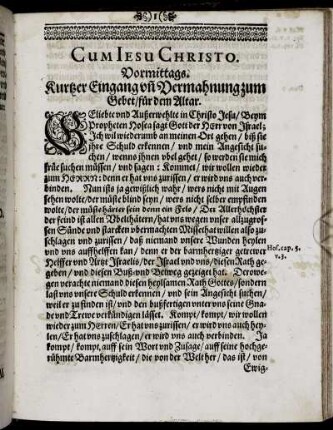 1
CUM IESU CHRISTO.
Vormittags.
Kurtzer Eingang vñ Vermahnung zum
Gebet / für dem Altar.
GEliebte vnd Außerwehlte in Christo Jesu / Beym
Propheten Hosea sagt Gott der HErr von Israel:
Ich wil wiederumb an meinen Ort gehen / biß sie
ihre Schuld erkennen / vnd mein Angesicht su-
chen / wenns ihnen vbel gehet / so werden sie mich
früe suchen müssen / vnd sagen: Kommet / wir wollen wieder
zum HERRN: denn er hat vns zurissen / er wird vns auch ver-
binden. Nun ists ja gewißlich wahr / wers nicht mit Augen
sehen wolte / der müste blind seyn / wers nicht selber empfinden
wolte / der müste härter sein denn ein Felß / Der Allerhöchste
der feind ist allen Vbelthätern / hat vns wegen vnser allzugros-
sen Sünde vnd starcken vbermachten Missethat willen also zu-
schlagen vnd zurissen / daß niemand vnsere Wunden heylen
vnd vns auffhelffen kan / denn er der barmhertziger getrewer
Helffer vnd Artzt Israelis / der Israel vnd vns / diesen Rath ge-
geben / vnd diesen Buß vnd Betweg gezeiget hat. Derowe-
gen verachte niemand diesen heylsamen Rath Gottes / sondern
last vns vnsere Schuld erkennen / vnd sein Angesicht suchen /
weil er zu finden ist / vnd den bußfertigen vnter vns seine Gna-
de vnd Trewe verkündigen lässet. Kompt / kompt / wir wollen
wieder zum HErren / Er hat vns zurissen / er wird vns auch hey-
len / Er hat vns zuschlagen / er wird vns auch verbinden. Ja
kompt / kompt / auff sein Wort vnd Zusage / auff seine hochge-
rühmte Barmhertzigkeit / die von der Welt her / das ist / von
Ewig-
Hos. cap. 5.
v. 3.